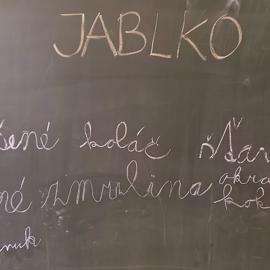 JABLKO
šené koláč šťar
né zmrzlina okra
kok
nuk